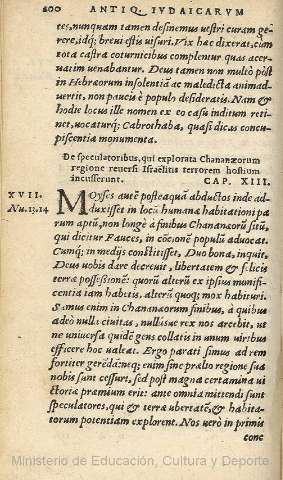 200 ANTIQ. IVDAICARVM
tes, nunquam tamen desinemus vestri curam ge-
rere, idq; brevi estis visuri. Vix hæc dixerat, cum
tota castra coturnicibus complentur quas acer-
vatim venabantur. Deus tamen non multò pòst
in Hebræorum insolentiā ac maledicta animad-
uertit, non paucis è populo desideratis. Nam &
hodie locus ille nomen ex eo casu inditum reti-
net, vocaturq; Cabrothaba, quasi dicas concu-
piscentia monumenta.
De speculatoribus, qui explorata Chananæorum
regione reuersi Israelitis terrorem hostium
incusserunt. CAP. XIII.
XVII.
Nu. 13.14
MOyses autē posteaquā abductos inde ad-
duxisset in locū humanæ habitationi pa
rum aptū, non longè à finibus Chananæorū sitū,
qui dicitur Fauces, in cōcionē populū aduocat.
Cumq; in medijs constitisset, Duo bona, inquit,
Deus vobis dare decreuit, libertatem & felicis
terræ possessionē: quorū alterū ex ipsius munifi-
centia iam habetis, alterū quoq; mox habituri.
Sumus enim in Chananæorum finibus, à quibus
adeò nulla ciuitas, nullus ve rex nos arcebit, ut
ne vniuersa quidē gens collatis in vnum viribus
efficere hoc valeat. Ergo parati simus ad rem
fortiter gerēdā: neq; enim sine prælio regione sua
nobis sunt cessuri, sed post magna certamina vi
ctoriæ præmium erit: ante omnia mittendi sunt
speculatores, qui & terræ vbertatē, & habita-
torum potentiam explorent. Nos verò in primis
conc
Ministerio de Educación, Cultura y Deporte